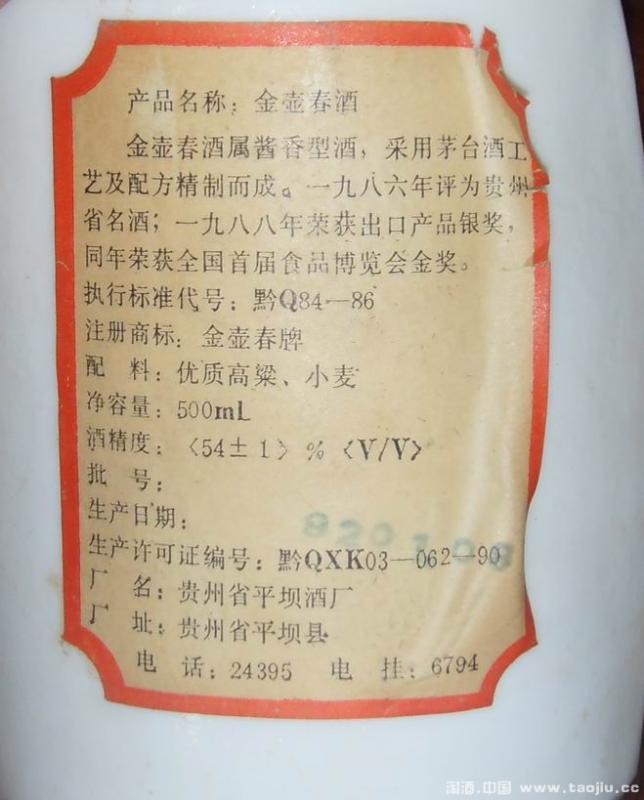 产品名称：金壶春酒
金壶春酒属酱香型酒，采用茅台酒工
艺及配方精制而成。一九八六年评为贵州
省名酒；一九八八年荣获出口产品银奖，
同年荣获全国首届食品博览会金奖。
执行标准代号：黔Q84—86
注册商标：金壶春牌
配 料：优质高粱、小麦
净容量：500mL
酒精度：〈54±1〉％〈V/V〉
批 号：
生产日期：
920108
生产许可证编号：黔QXK03—062—90
厂 名：贵州省平坝酒厂
厂 址：贵州省平坝县
电 话：24395 电 挂：6794
淘酒.中国 www.taojiu.cc